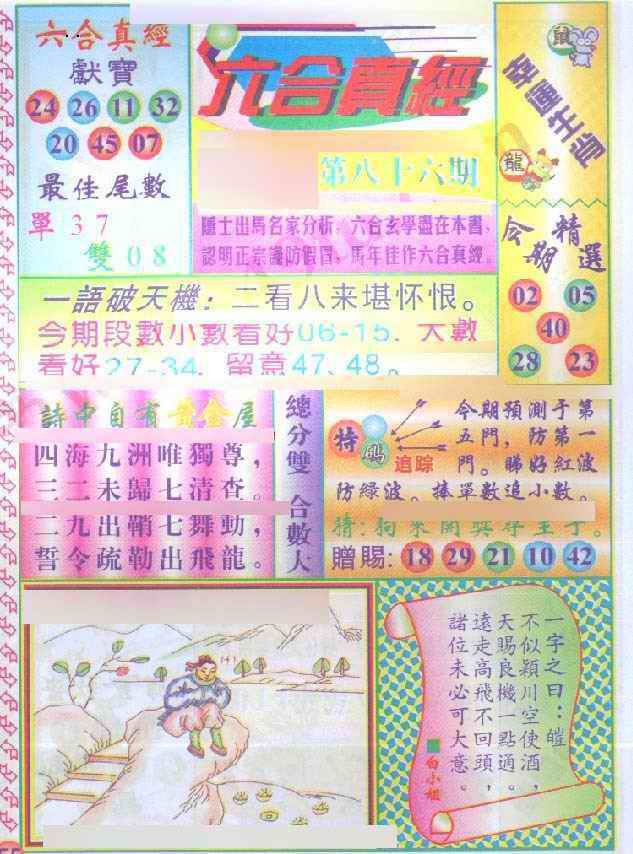 六合真經
獻寶
24 26 11 32
20 45 07
最佳尾數
單 3 7
雙 0 8
六合真經
第八十六期
隱士出馬名家分析，六合玄學盡在本書，
認明正宗謹防假冒，馬年佳作六合真經。
鼠
幸運生肖
龍
今期精選
02 05
40
28 23
一語破天機：二看八来堪怀恨。
今期段數小數看好06-15．大數
看好27-34．留意47、48。
詩中自有黃金屋
四海九洲唯獨尊，
三二未歸七清查。
二九出鞘七舞動，
誓令疏勒出飛龍。
總分雙 合數大
特碼
追踪
今期預測于第
五門，防第一
門。睇好紅波
防綠波。捧單數追小數。
贈賜：18 29 21 10 42
一字之曰：皚
不似潁川空使酒，
天賜良機一點通。
遠走高飛不回頭，
諸位未必可大意。
白小姐